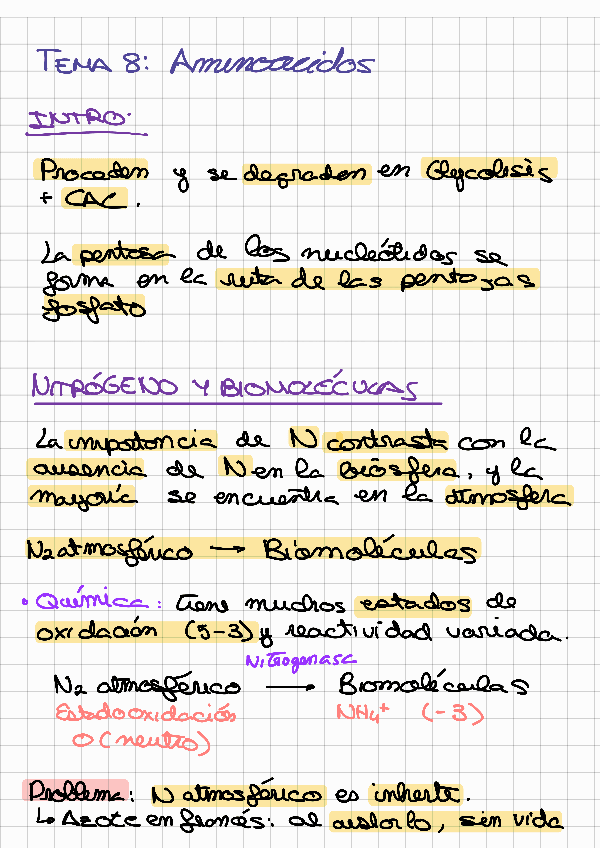 TEMA 8: Aminoacidos
INTRO.
Proceden y se degradan en Glycolisis
+ CAC.
La pentosa de los nucleótidos se
forma en la ruta de las pentosas
fosfato
NITRÓGENO Y BIOMOLÉCULAS
La importancia de N contrasta con la
ausencia de N en la biosfera, y la
mayoría se encuentra en la atmosfera
N2 atmosférico → Biomoléculas
• Química: Tiene muchos estados de
oxidación (5-3) y reactividad variada.
Nitrogenasa
N2 atmosférico → Biomoléculas
Estado oxidación NH4+ (-3)
0 (neutro)
Problema: N atmosférico es inherte.
↳ Azote en francés: al aislarlo, sin vida